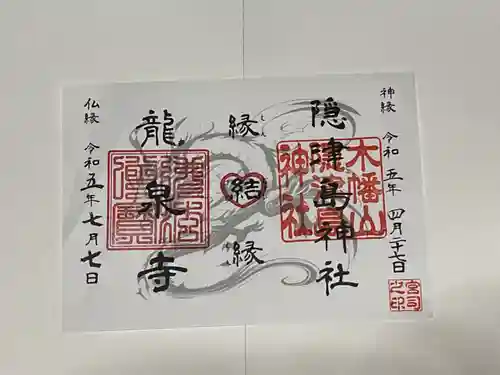 神縁 令和五年 四月二十七日
隠津島神社
木幡山
隠津島
神社
宮司之印
縁
結
縁
龍泉寺
仏縁 令和五年七月七日